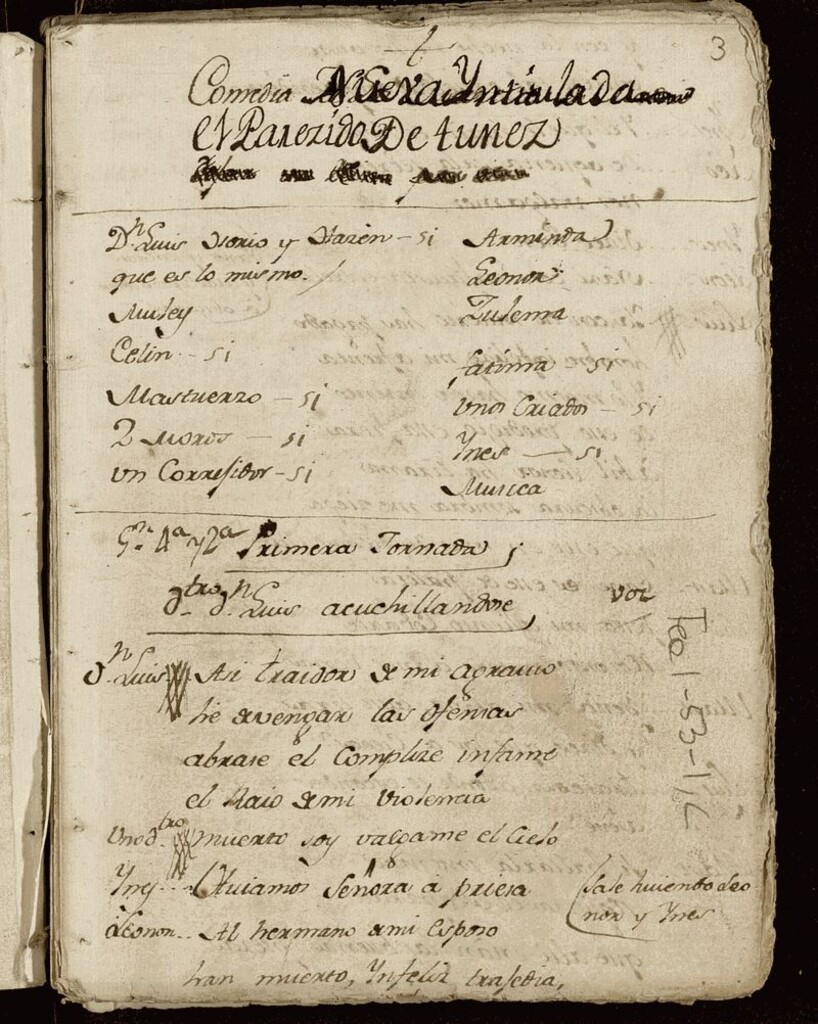 3
Comedia Nueva Yntitulada
el Parezido De tunez
Dn Luis Osorio y Hazen - si
que es lo mismo.
Muley
Celin - si
Mastuerzo - si
2 Moros - si
un Corregidor - si
Arminda
Leonor
Zulema
fatima si
Unos Criados - si
Ynes - si
Musica
4a y 2a Primera Jornada
Dn Luis acuchillandose
voz
Dn Luis Asi traidor de mi agravio
he de vengar las ofensas
abrase el Complize infame
el Raio de mi violencia
Uno dtro muerto soy valgame el Cielo
Ynes Huiamos Señora a priesa
sale huiendo Leo
nor y Ynes
Leonor Al hermano de mi esposo
han muerto, Ynfeliz trajedia,
Tea 1-53-11, C